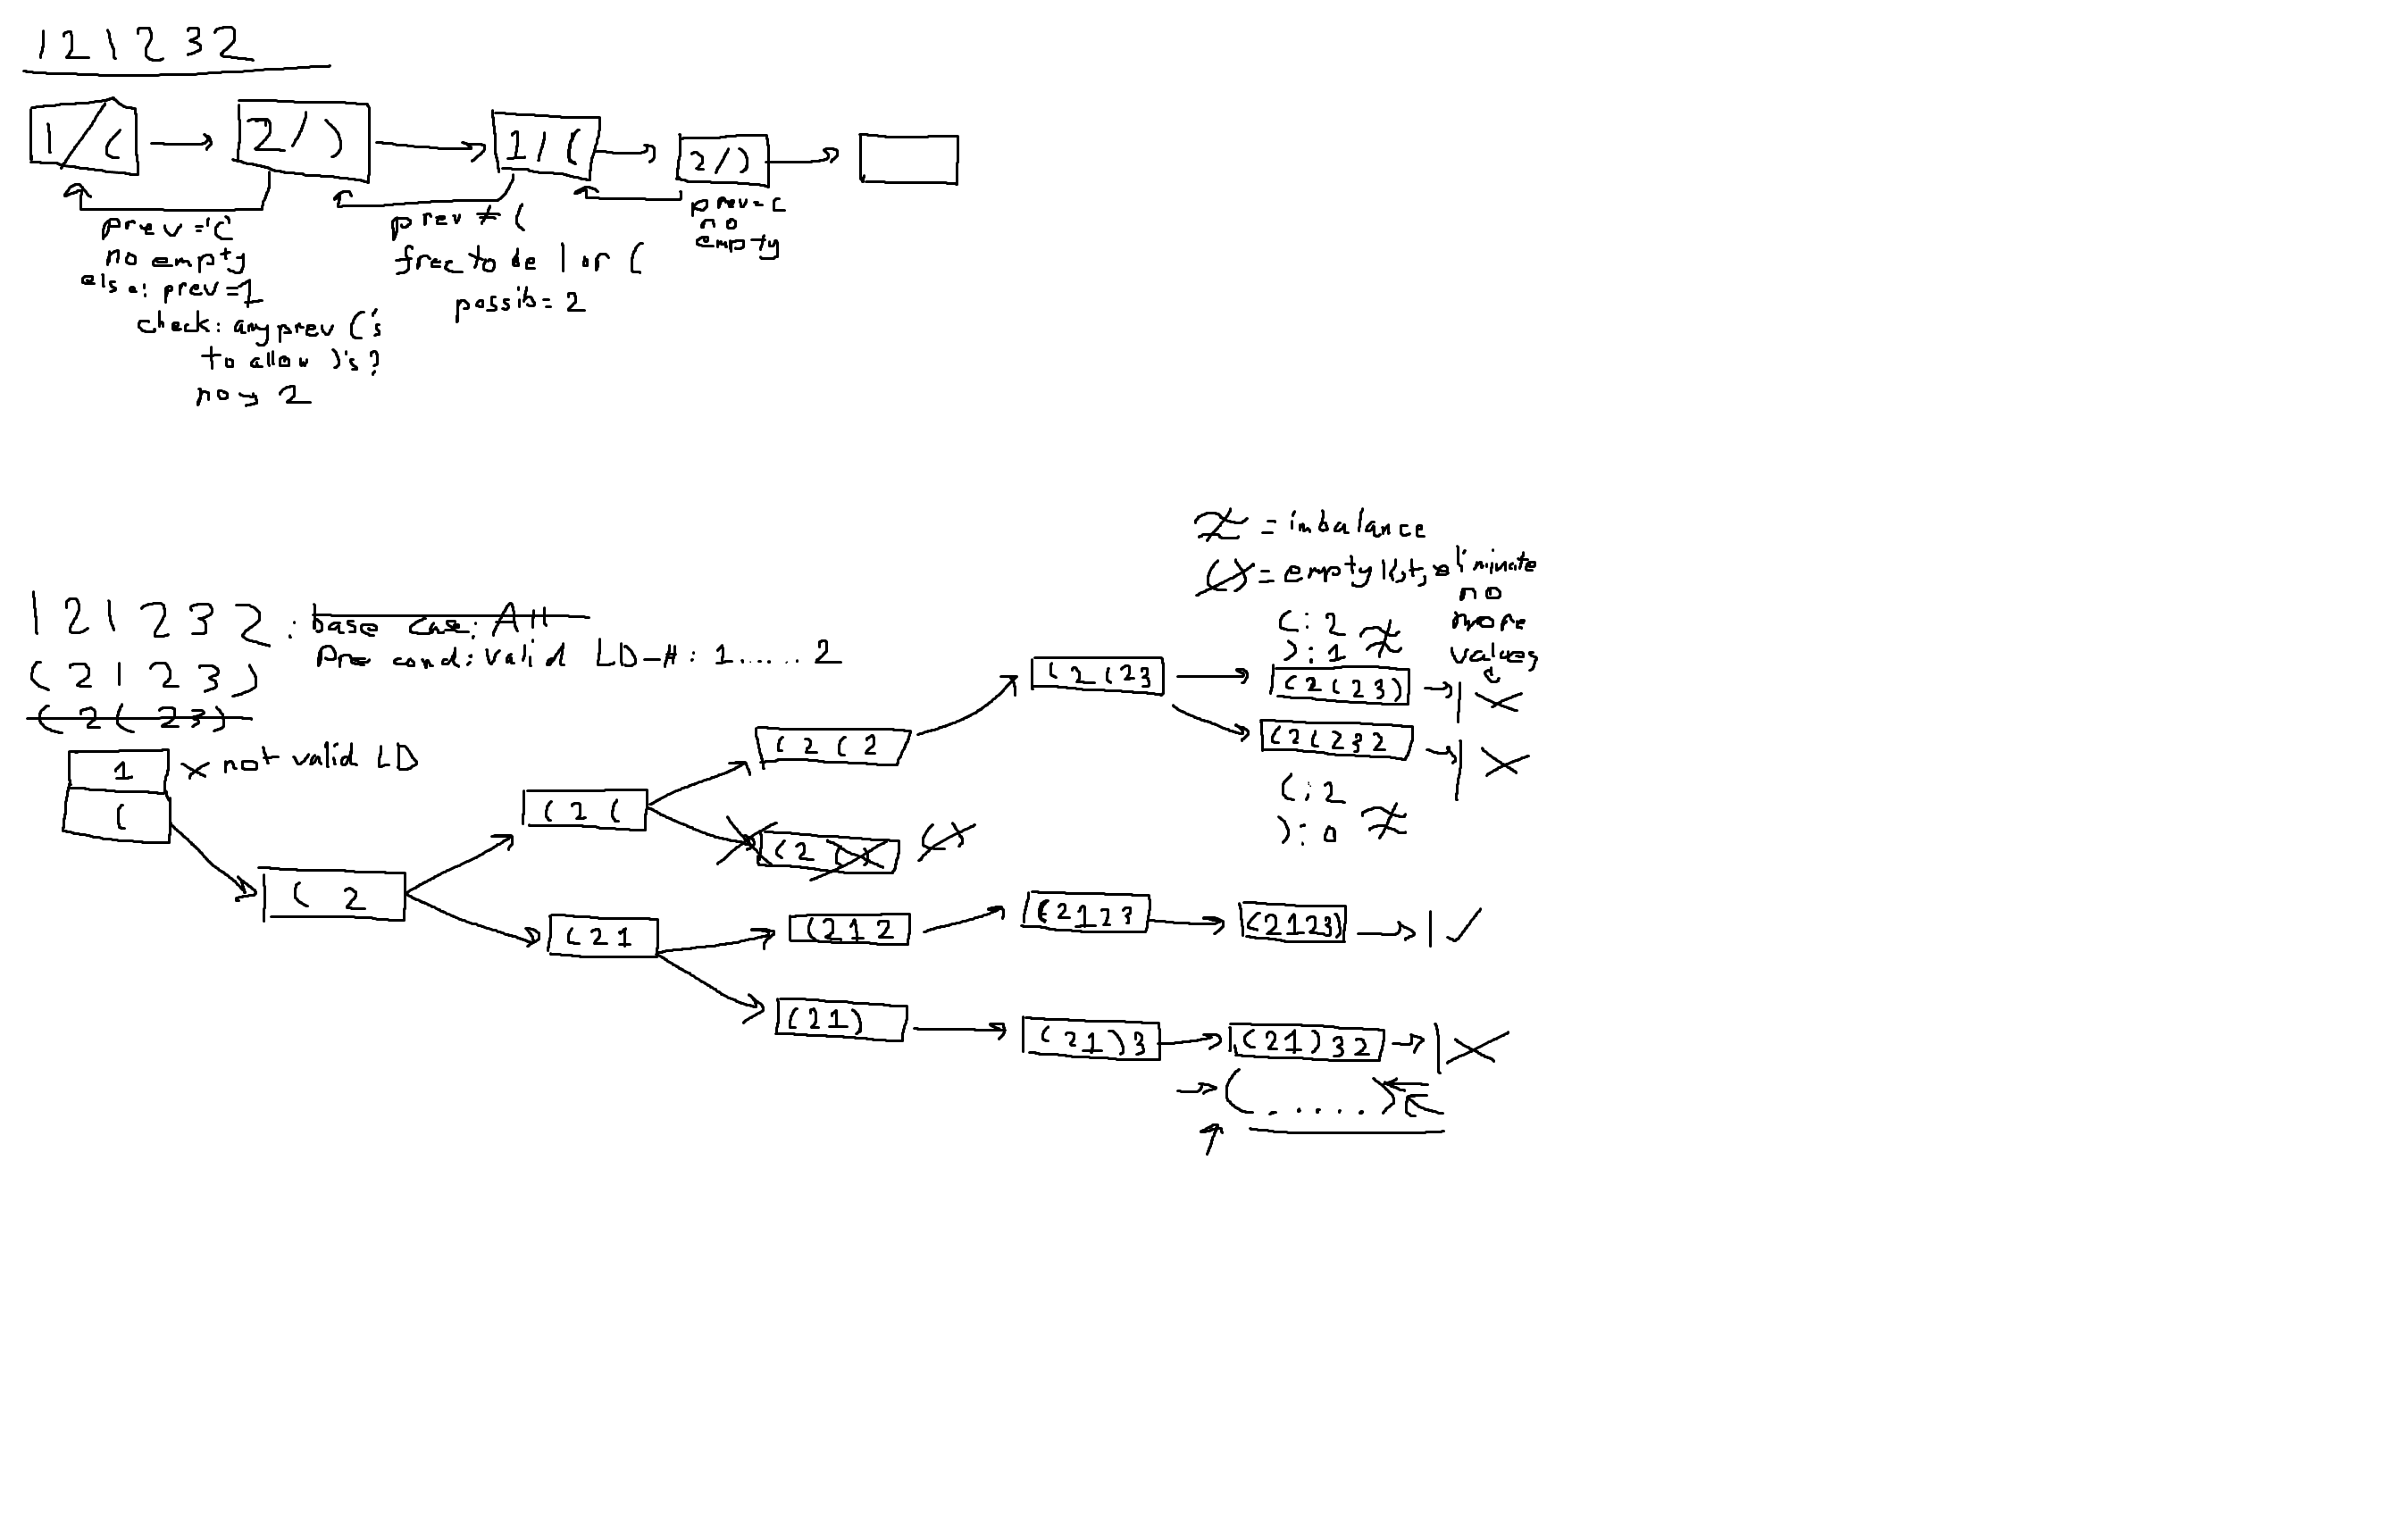 1 2 1 2 3 2
1/(
2/)
1/(
2/)
prev='('
no empty
else: prev=1
check: any prev ('s
to allow )'s?
no → 2
prev ≠ (
free to be 1 or (
possib= 2
prev=(
no
empty
≉ = imbalance
() = empty list, eliminate
no
more
values
1 2 1 2 3 2 : base case: All
Pre cond: valid LD-#: 1......2
( 2 1 2 3 )
( 2 ( 2 3 )
1
× not valid LD
(
( 2
( 2 (
( 2 1
( 2 ( 2
( 2 ()
()
( 2 1 2
( 2 1 )
( 2 ( 2 3
( 2 1 2 3
( 2 1 ) 3
(: 2
): 1 ≉
( 2 ( 2 3 )
( 2 ( 2 3 2
(: 2
): 0 ≉
( 2 1 2 3 )
( 2 1 ) 3 2
( . . . . . )